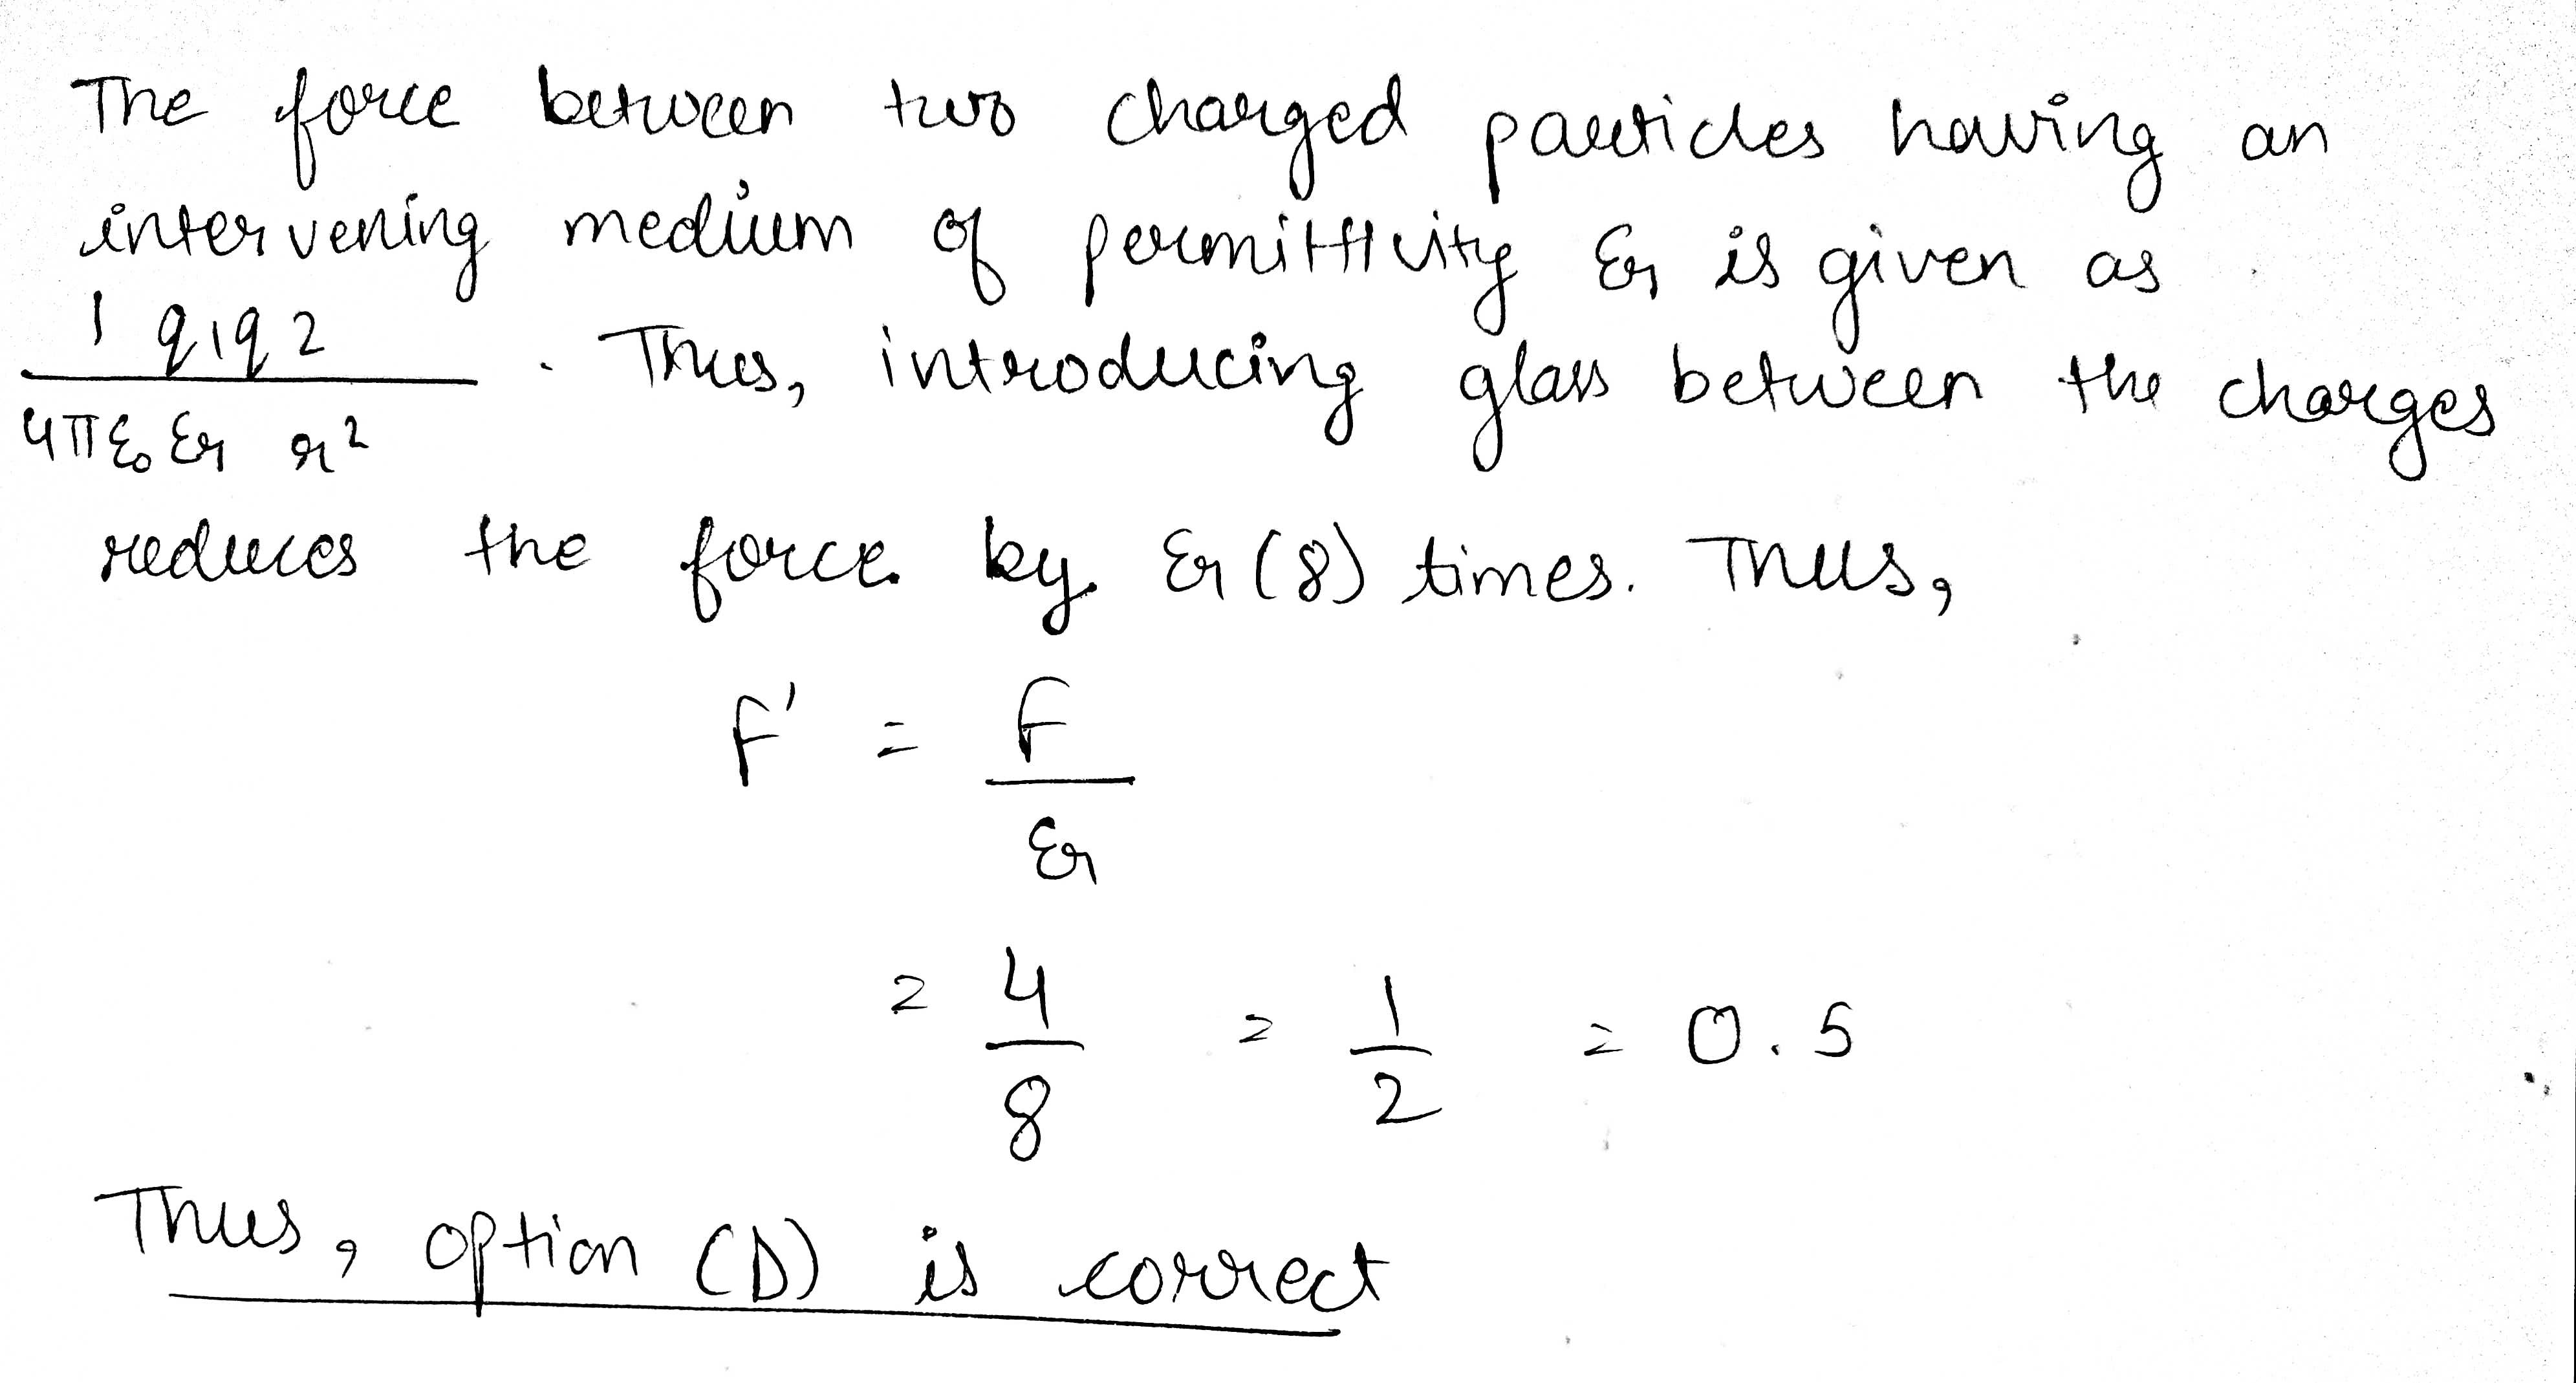 The force between two charged particles having an
intervening medium of permittivity εr is given as
1 q1q2 / 4πε₀ εr r² . Thus, introducing glass between the charges
reduces the force by εr (8) times. Thus,
F' = F / εr
= 4 / 8 = 1 / 2 = 0.5
Thus, option (D) is correct